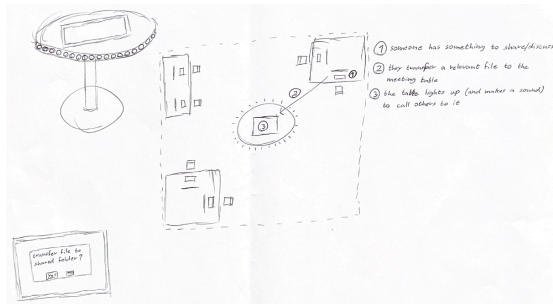 ① someone has something to share/discuss
② they transfer a relevant file to the
meeting table
③ the table lights up (and makes a sound)
to call others to it
①
②
③
transfer file to
shared folder?